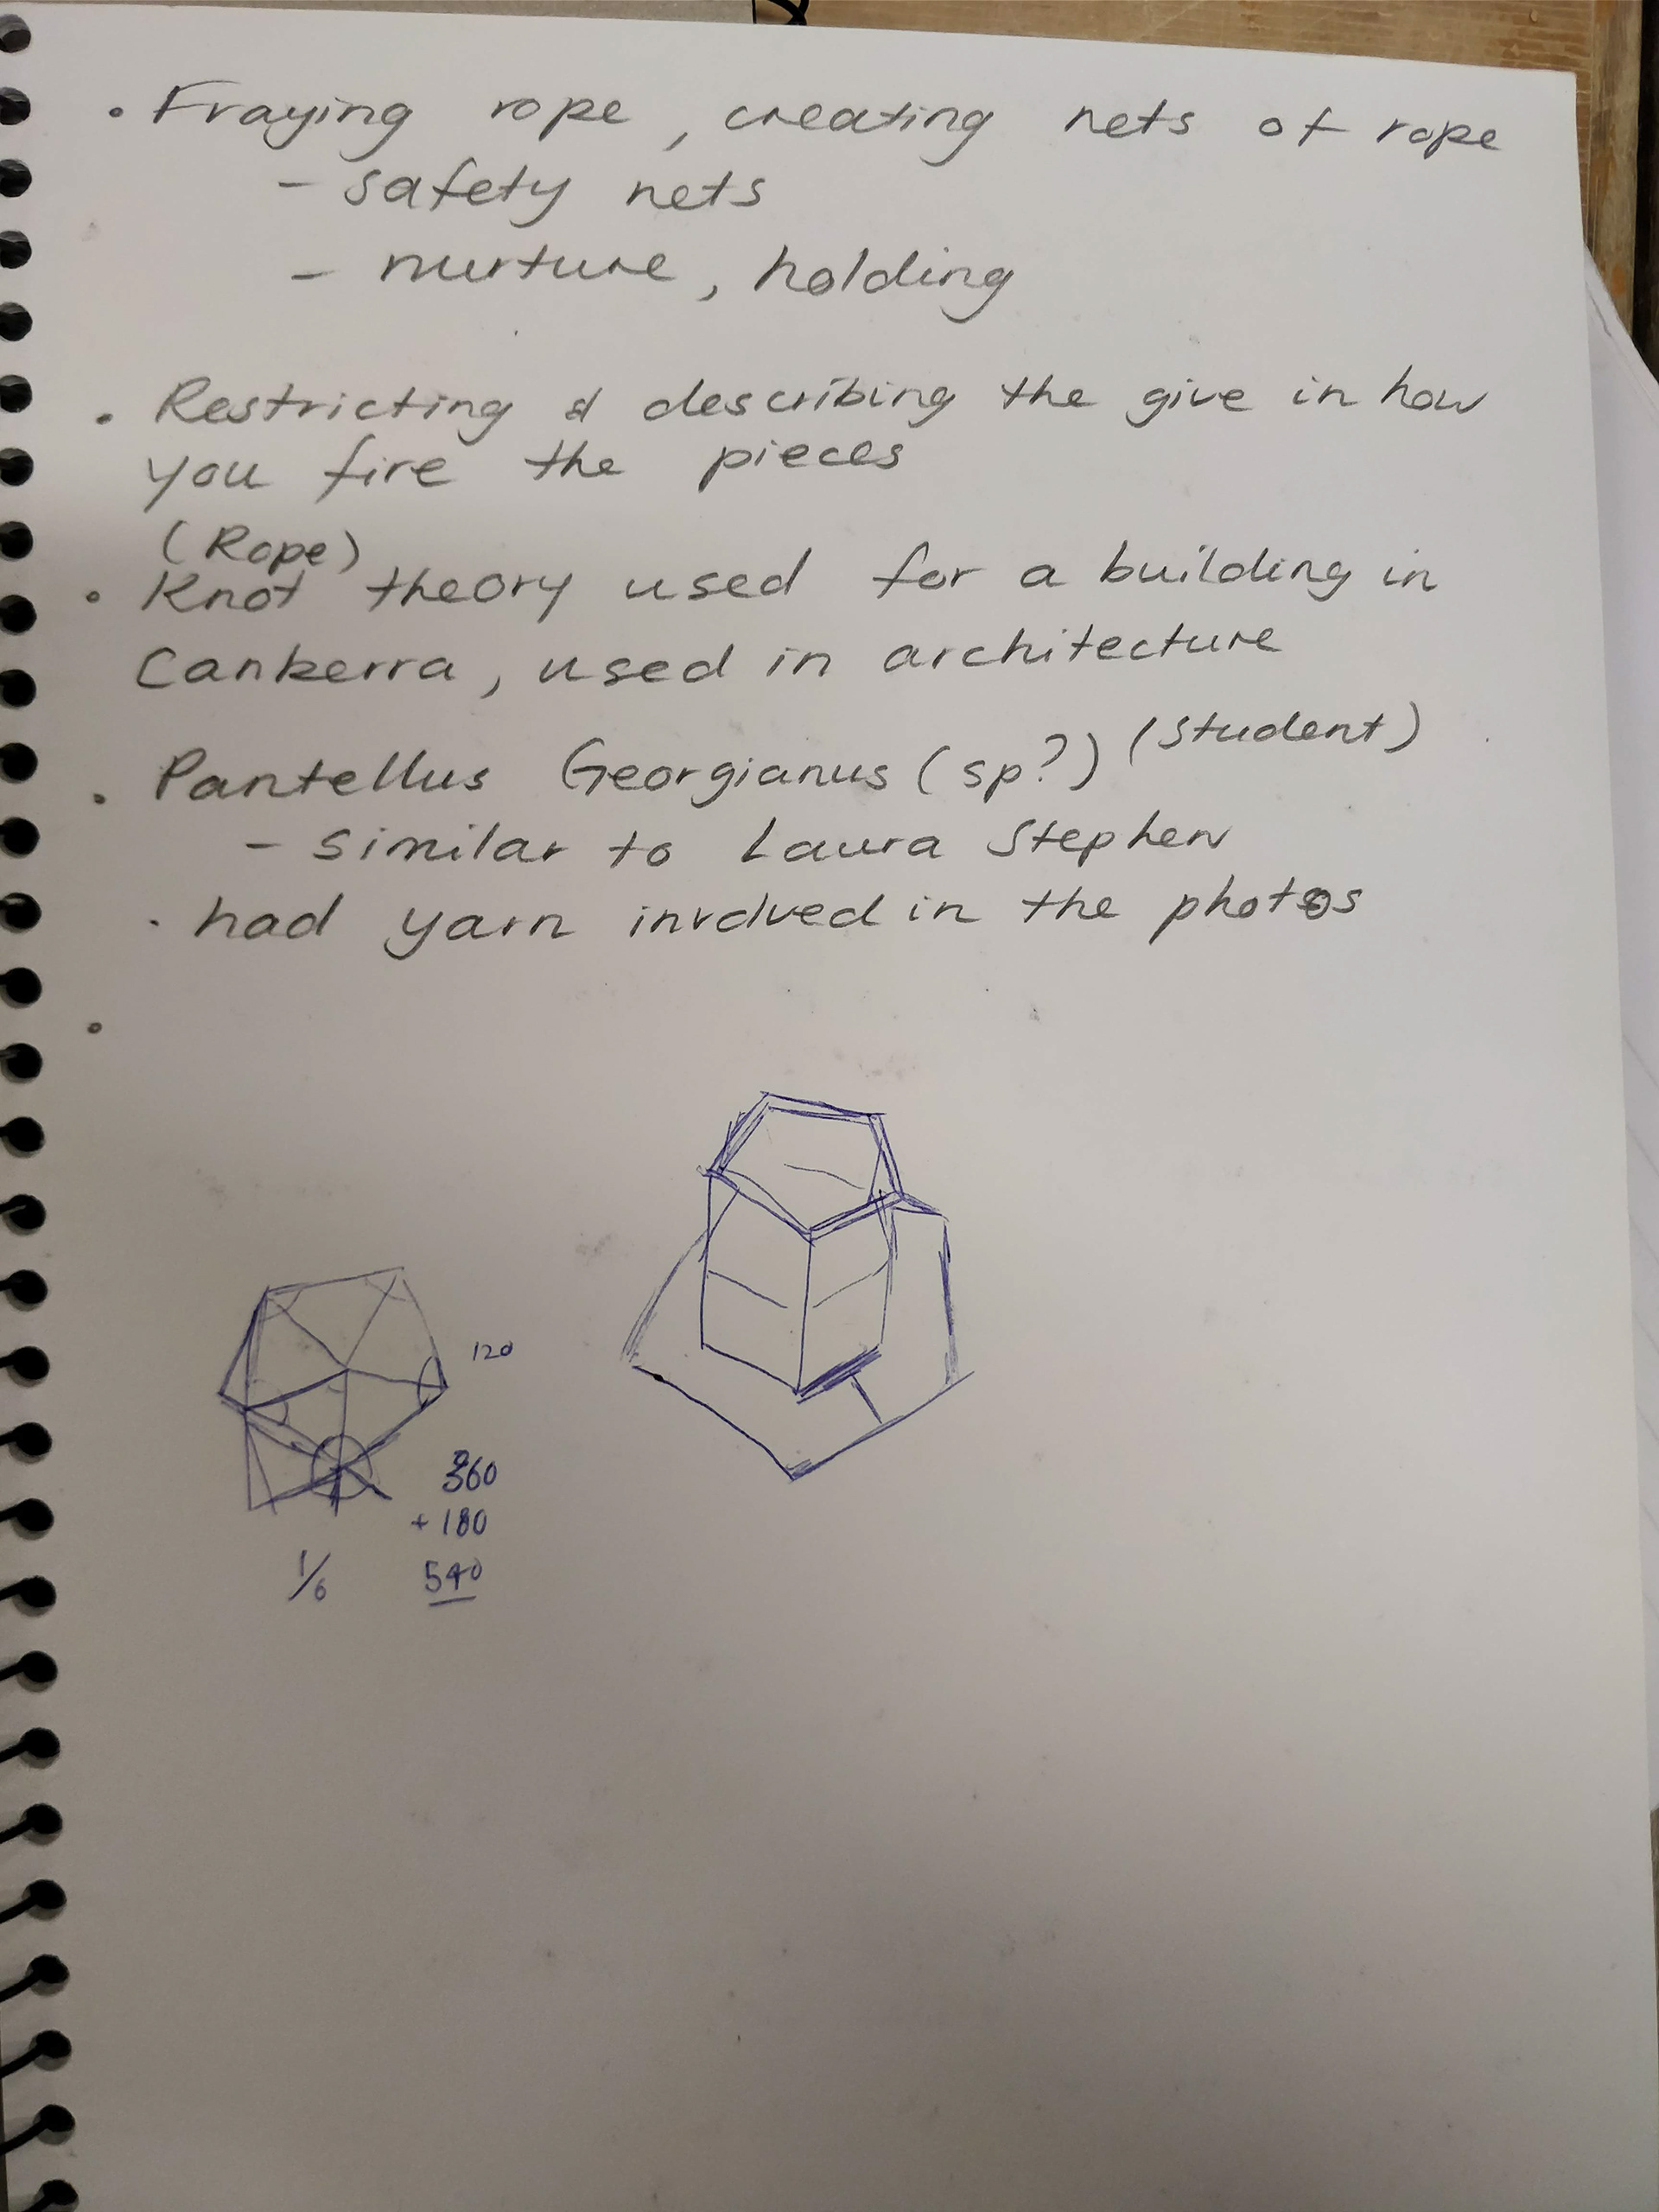 • Fraying rope, creating nets of rope
- safety nets
- nurture, holding
• Restricting & describing the give in how
you fire the pieces
(Rope)
• Knot theory used for a building in
Canberra, used in architecture
• Pantellus Georgianus (sp?) (student)
- similar to Laura Stephen
• had yarn involved in the photos
•
120
360
+ 180
540
1/6